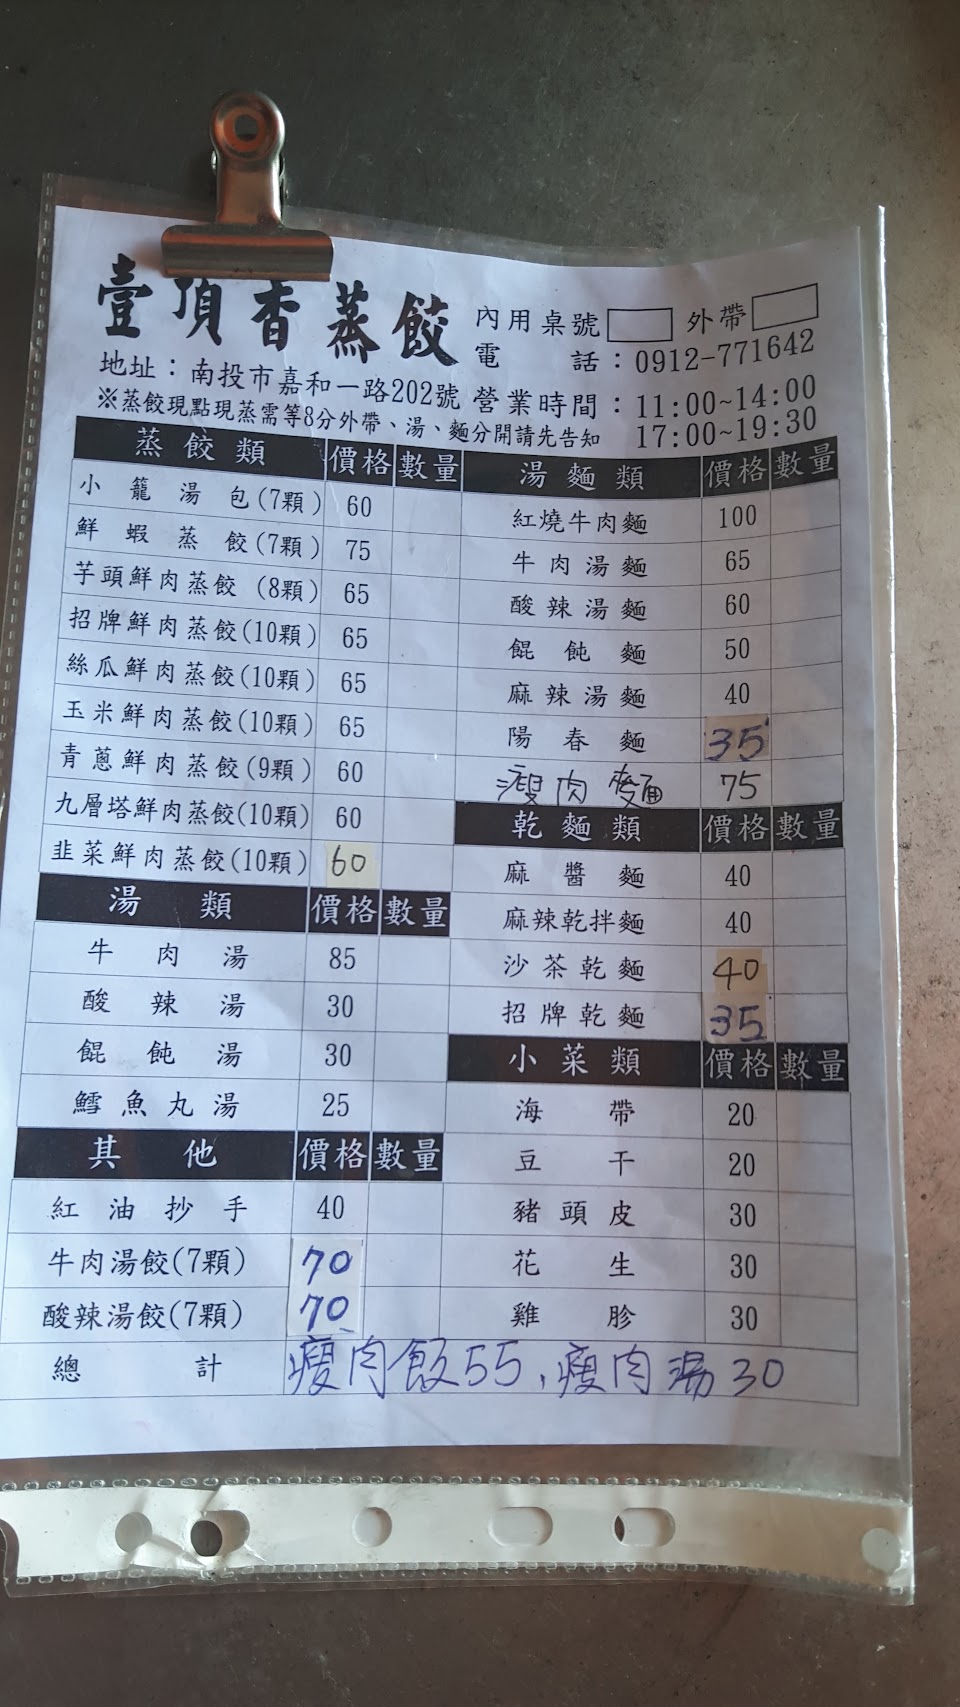 壹頂香蒸餃
內用桌號 外帶
電話：0912-771642
地址：南投市嘉和一路202號
營業時間：11:00~14:00
17:00~19:30
※蒸餃現點現蒸需等8分外帶、湯、麵分開請先告知
蒸餃類 價格 數量
小籠湯包(7顆) 60
鮮蝦蒸餃(7顆) 75
芋頭鮮肉蒸餃(8顆) 65
招牌鮮肉蒸餃(10顆) 65
絲瓜鮮肉蒸餃(10顆) 65
玉米鮮肉蒸餃(10顆) 65
青蔥鮮肉蒸餃(9顆) 60
九層塔鮮肉蒸餃(10顆) 60
韭菜鮮肉蒸餃(10顆) 60
湯類 價格 數量
牛肉湯 85
酸辣湯 30
餛飩湯 30
鱈魚丸湯 25
其他 價格 數量
紅油抄手 40
牛肉湯餃(7顆) 70
酸辣湯餃(7顆) 70
湯麵類 價格 數量
紅燒牛肉麵 100
牛肉湯麵 65
酸辣湯麵 60
餛飩麵 50
麻辣湯麵 40
陽春麵 35
瘦肉麵 75
乾麵類 價格 數量
麻醬麵 40
麻辣乾拌麵 40
沙茶乾麵 40
招牌乾麵 35
小菜類 價格 數量
海帶 20
豆干 20
豬頭皮 30
花生 30
雞胗 30
總計 瘦肉飯55,瘦肉湯30